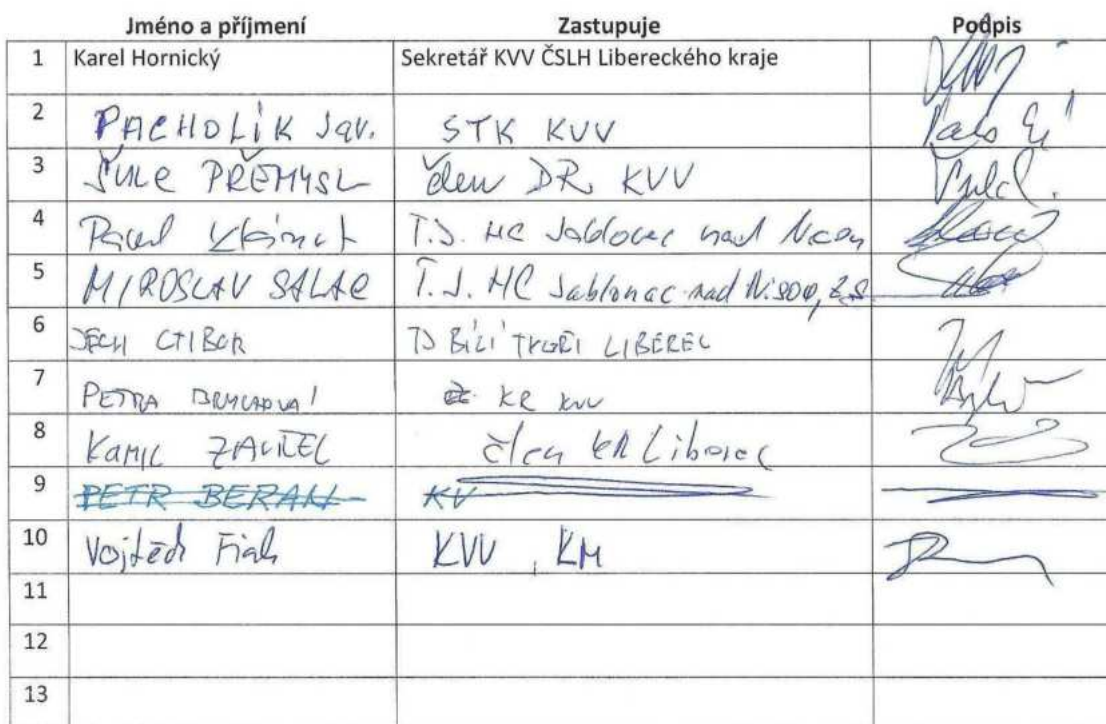 Jméno a příjmení Zastupuje Podpis
1 Karel Hornický Sekretář KVV ČSLH Libereckého kraje
2 PACHOLÍK Jar. STK KVV
3 ŠULC PŘEMYSL člen DR KVV
4 Pavel T.J. HC Jablonec nad Nisou
5 MIROSLAV SALAC T.J. HC Jablonec nad Nisou, z.s.
6 JECH CTIBOR TJ BÍLÍ TYGŘI LIBEREC
7 PETRA KR KVV
8 KAMIL člen KR Liberec
9 PETR BERAN KV
10 Vojtěch KVV, KM
11
12
13